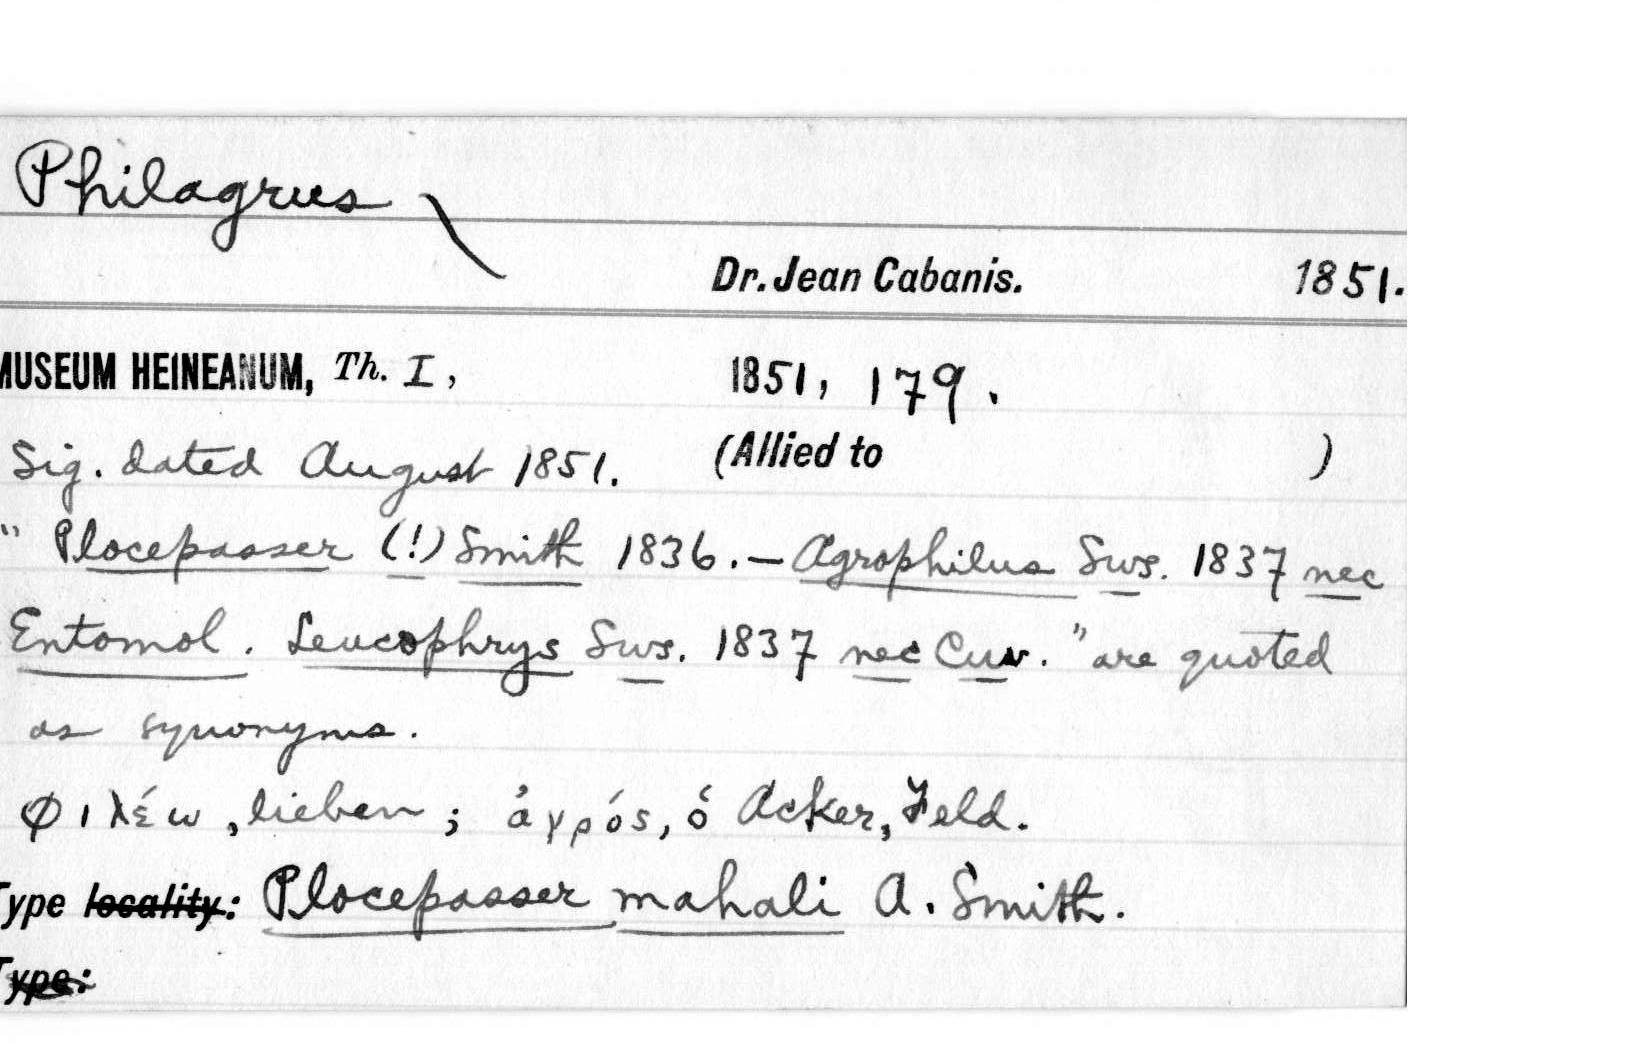 Philagrus
Dr. Jean Cabanis. 1851.
MUSEUM HEINEANUM, Th. I, 1851, 179.
Sig. dated August 1851. (Allied to )
" Plocepasser (!) Smith 1836. — Agrophilus Sws. 1837 nec
Entomol. Leucophrys Sws. 1837 nec Cuv. " are quoted
as synonyms.
φιλέω, lieben; ἀγρός, ὁ Acker, Feld.
Type locality: Plocepasser mahali A. Smith.
Type: